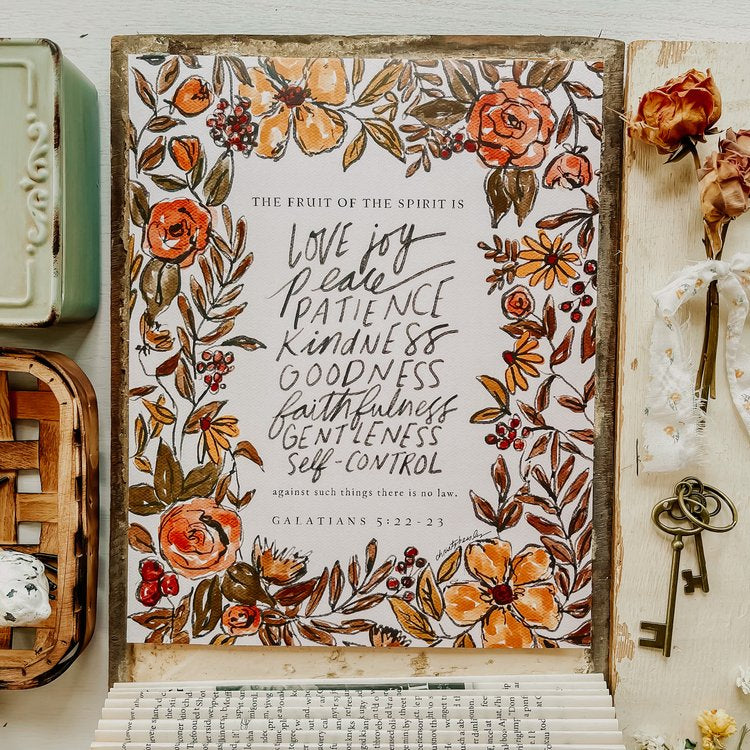 THE FRUIT OF THE SPIRIT IS
LOVE joy
Peace
PATIENCE
KINDNESS
GOODNESS
faithfulness
GENTLENESS
Self-CONTROL
against such things there is no law.
GALATIANS 5:22-23